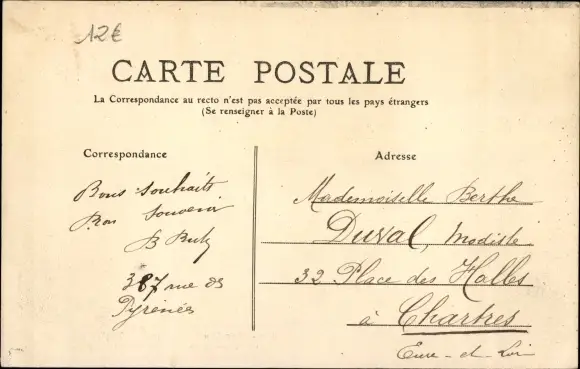 12€
CARTE POSTALE
La Correspondance au recto n'est pas acceptée par tous les pays étrangers
(Se renseigner à la Poste)
Correspondance
Bons souhaits
Bon Souvenir
B
387 rue ds
Pyrénées
Adresse
Mademoiselle Berthe
Duval, Modiste
32 Place des Halles
à Chartres
Eure-et-Loir